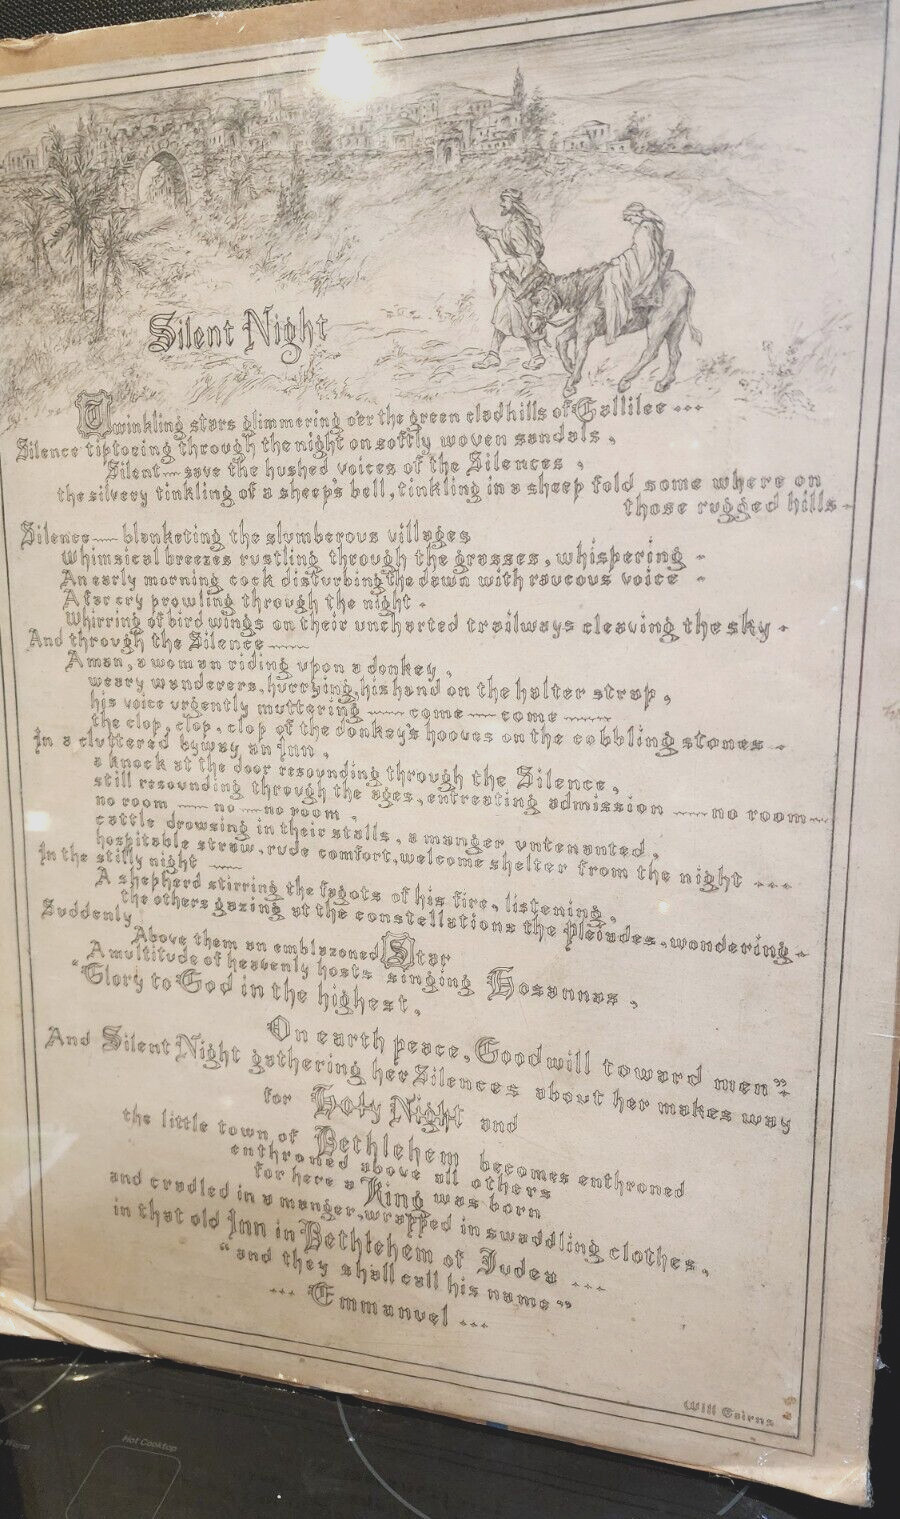 Silent Night
Twinkling stars glimmering o'er the green clad hills of Gallilee ...
Silence tiptoeing through the night on softly woven sandals,
Silent — save the hushed voices of the Silences ,
the silvery tinkling of a sheep's bell, tinkling in a sheep fold some where on
those rugged hills -
Silence — blanketing the slumberous villages
whimsical breezes rustling through the grasses, whispering -
An early morning cock disturbing the dawn with raucous voice -
A far cry prowling through the night -
Whirring of bird wings on their uncharted trailways cleaving the sky -
And through the Silence —
A man, a woman riding upon a donkey,
weary wanderers, hurrying, his hand on the halter strap,
his voice urgently muttering — come — come —
the clop, clop, clop of the donkey's hooves on the cobbling stones -
In a cluttered byway an Inn,
a knock at the door resounding through the Silence,
still resounding through the ages, entreating admission — no room —
no room — no — no room,
cattle drowsing in their stalls, a manger untenanted,
hospitable straw, rude comfort, welcome shelter from the night ...
In the stilly night —
A shepherd stirring the fagots of his fire, listening,
the others gazing at the constellations the Pleiades, wondering -
Suddenly
Above them an emblazoned Star
A multitude of heavenly hosts singing Hosannas,
"Glory to God in the highest,
On earth peace, Good will toward men".
And Silent Night gathering her Silences about her makes way
for Holy Night and
the little town of Bethlehem becomes enthroned
enthroned above all others
for here a King was born
and cradled in a manger, wrapped in swaddling clothes,
in that old Inn in Bethlehem of Judea ...
"and they shall call his name"
... Emmanuel ...
Will Cairns
Hot Cooktop
Warm